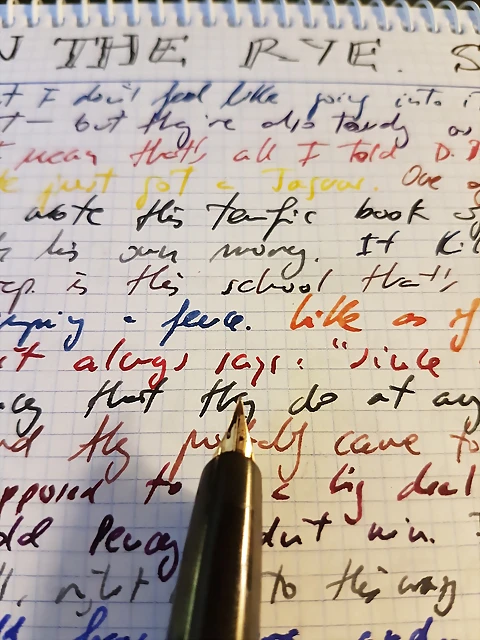 N THE RYE. S
t I don't feel like going into i
t – but they're also touchy as
t mean that's all I told D.B
e just got a Jaguar. One o
wrote this terrific book S
h his own money. It Kil
rep. is this school that's
mping a fence. Like as if
t always says: "Since
ncy that they do at any
nd they practically came to
pposed to a big deal
old Pencey didn't win.
ll, right to this way